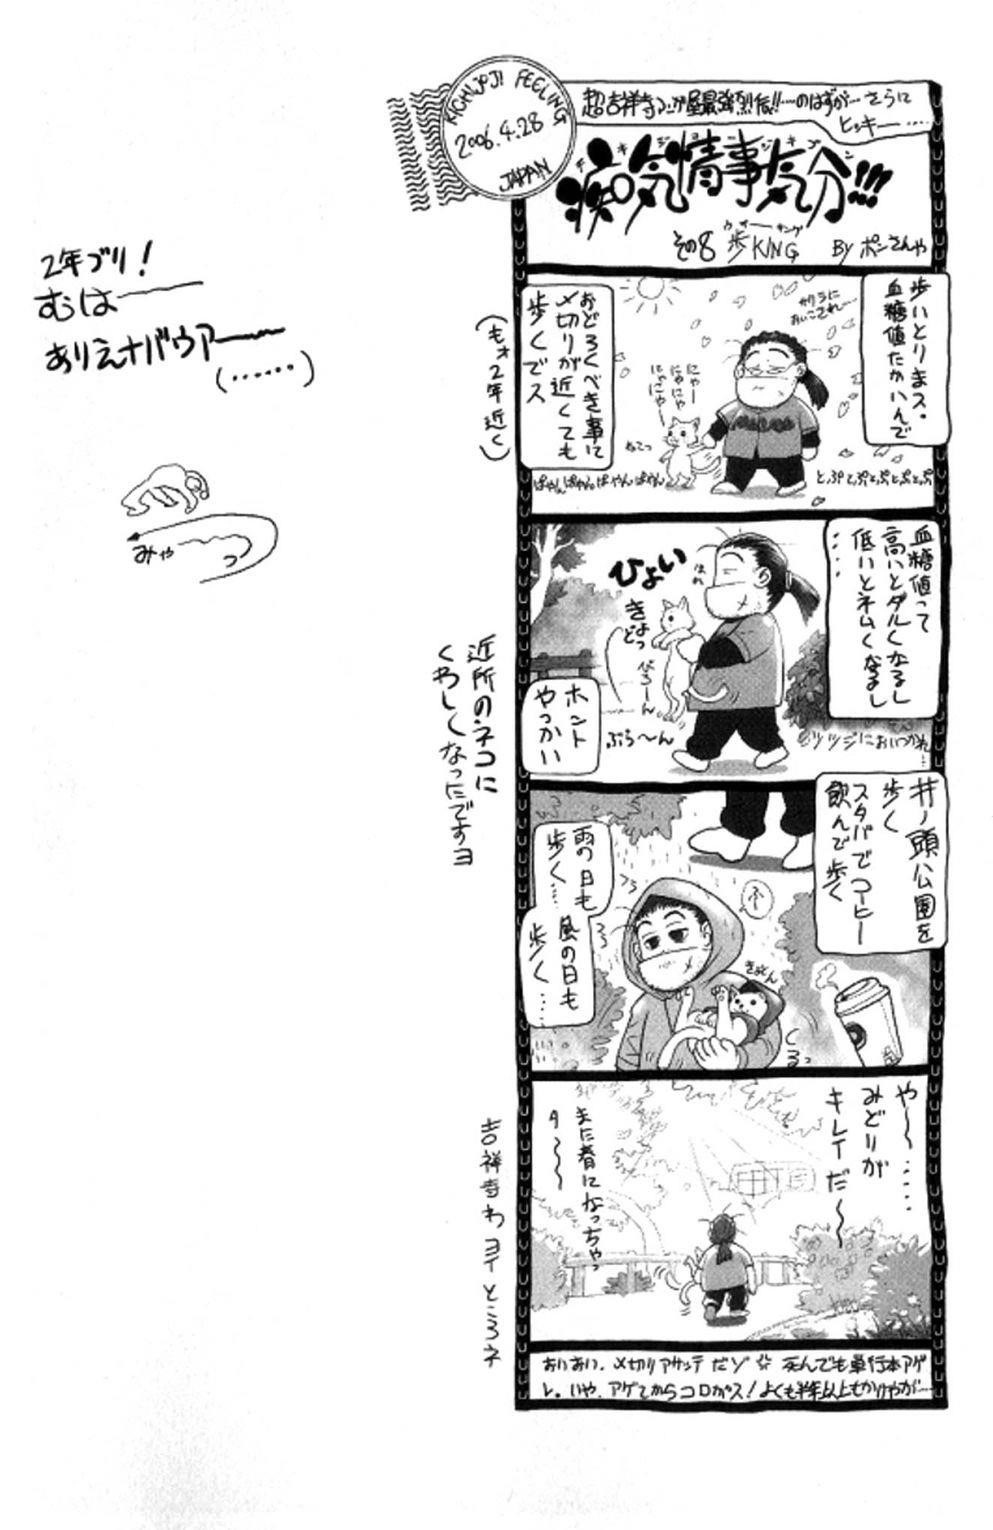 KICHIJOJI FEELING
2006.4.28
JAPAN
超吉祥寺マンガ屋最強烈伝!!……のはずが…さらに
ヒッキー……
病気情事気分!!!
その8 歩KING
ウォーキング
By ポンさんや
歩いとりまス・
血糖値たかいんで
サクラに
おいこされ…
おどろくべき事に
〆切りが近くても
歩くでス
(もォ2年近く)
にゃー
にゃにゃ
にゃにゃー
ねこっ
ぱやんぱやんぱやんぱやん
とぷとぷとぷとぷとぷ
血糖値って
高いとダルくなるし
低いとネムくなるし
……
ひょい
はれ
きょどっ
べろーん
ぶら〜ん
ホント
やっかい
ツツジにおいつかれ…
井ノ頭公園を
歩く
スタバでコーヒー
飲んで歩く
雨の日も
歩く…
風の日も
歩く……
ふー
きょとん
や〜……
みどりが
キレイだ〜
また春になっちゃっ
タ〜〜
おいおい、〆切りアサッテだゾ☆ 死んでも単行本アゲ
レ。いや、アゲてからコロガス!よくも半年以上もかりやが…
2年ブリ!
むは――
ありえナバウアー――
(……)
みゃ〜〜っ
近所のネコに
くわしくなったですヨ
吉祥寺わヨイところネ